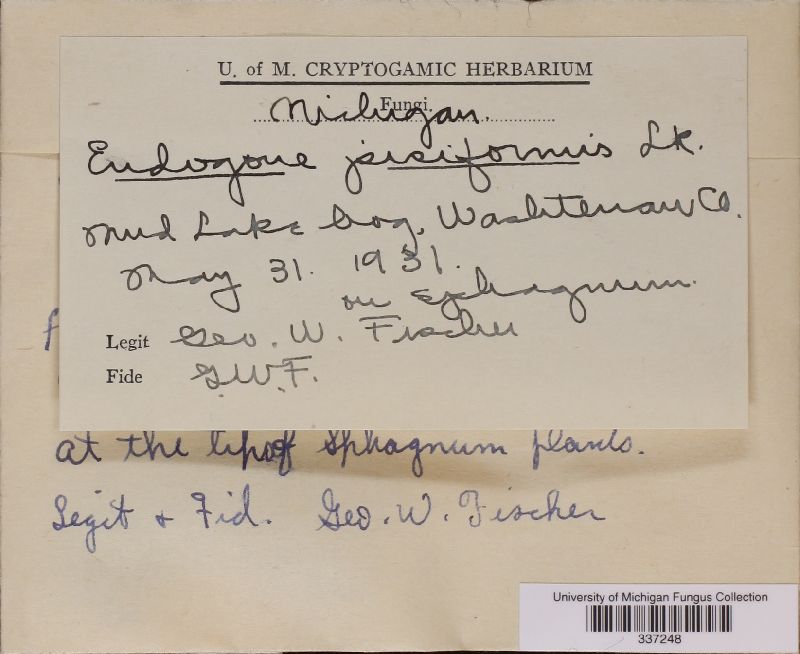 U. of M. CRYPTOGAMIC HERBARIUM
Fungi.
Michigan.
Endogone pisiformis Lk.
Mud Lake bog, Washtenaw Co.
May 31. 1931.
on Sphagnum.
Legit Geo. W. Fischer
Fide G.W.F.
at the tip of Sphagnum plants.
Legit & Fid. Geo. W. Fischer
University of Michigan Fungus Collection
337248